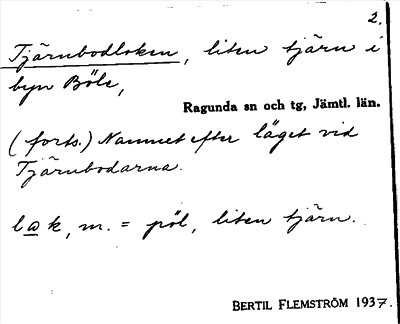 2.
Tjärnbodloken, liten tjärn i
byn Böle,
Ragunda sn och tg, Jämtl. län.
(forts.) Namnet efter läget vid
Tjärnbodarna.
l@k, m. = pöl, liten tjärn.
BERTIL FLEMSTRÖM 1937.